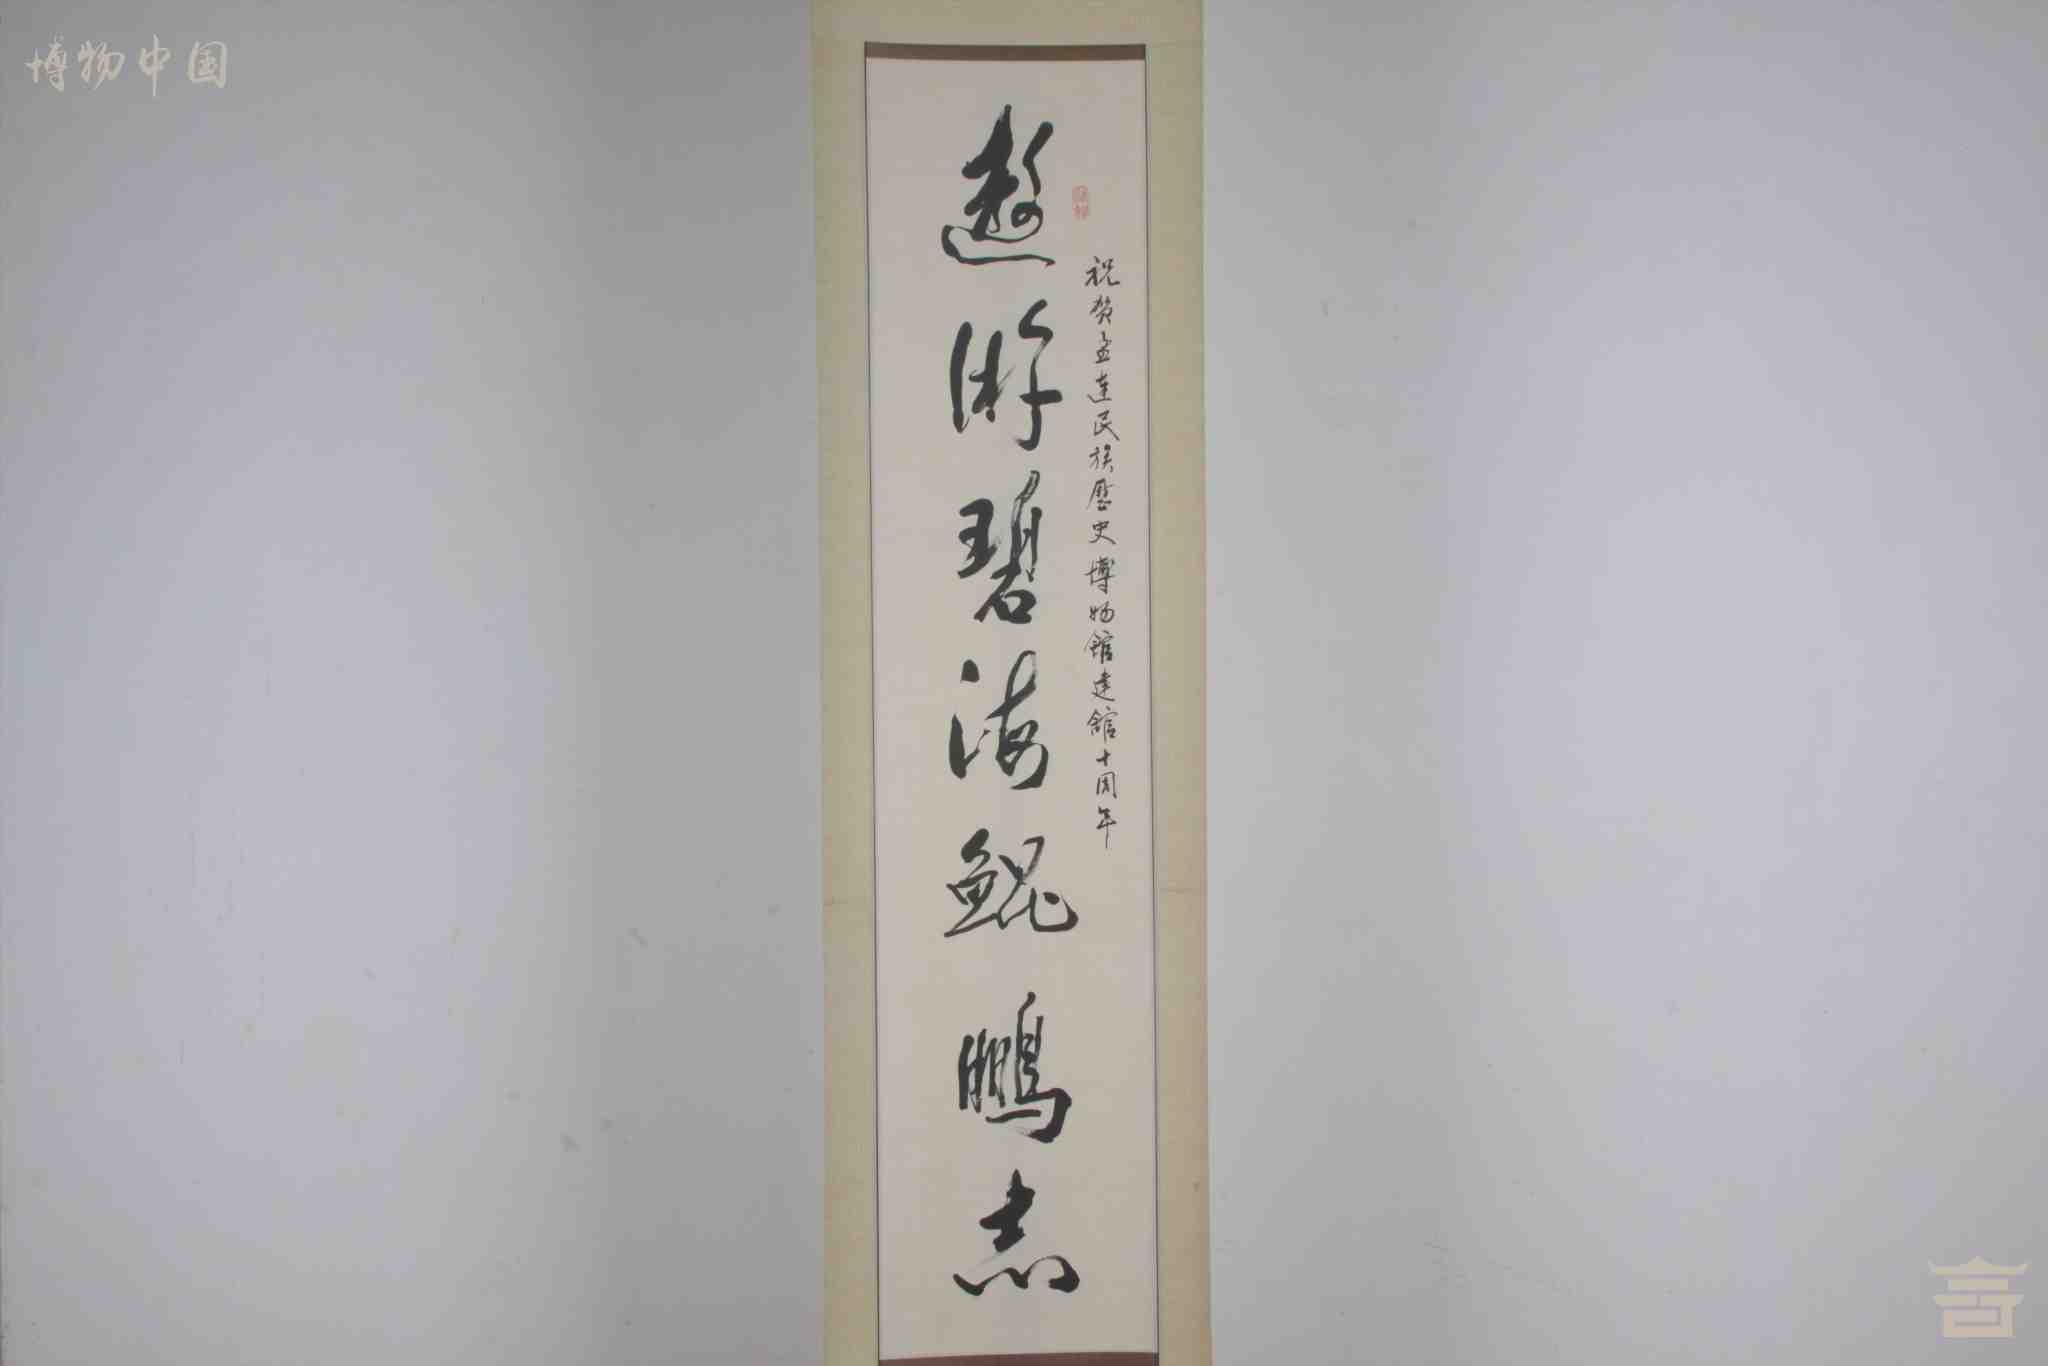 博物中国
祝贺孟连民族歷史博物館建館十周年
遨游碧海鲲鹏志